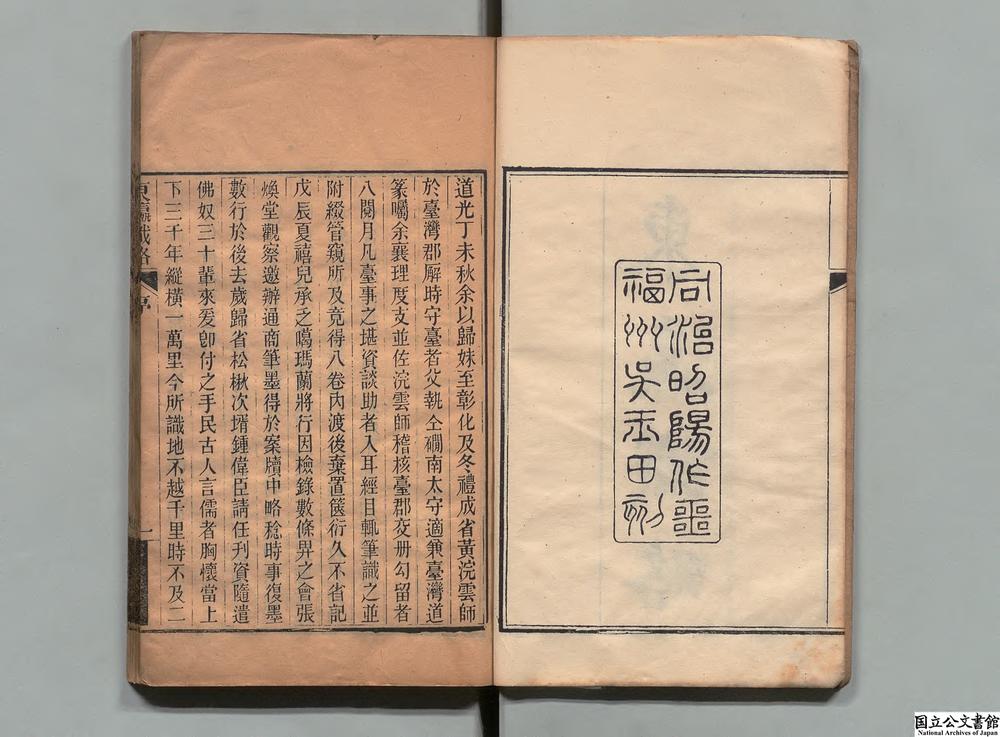 同治昭陽作噩
福州吳玉田刻
道光丁未秋余以歸妹至彰化及冬禮成省黃浣雲師
於臺灣郡廨時守臺者父執仝磵南太守適兼臺灣道
篆囑余襄理度支並佐浣雲師稽核臺郡交册勾留者
八閱月凡臺事之堪資談助者入耳經目輒筆識之並
附綴管窺所及竟得八卷內渡後棄置篋衍久不省記
戊辰夏禧兒承乏噶瑪蘭將行因檢錄數條畀之會張
煥堂觀察邀辦通商筆墨得於案牘中略稔時事復墨
數行於後去歲歸省松楸次壻鍾偉臣請任刊資隨遣
佛奴三十輩來爰卽付之手民古人言儒者胸懷當上
下三千年縱橫一萬里今所識地不越千里時不及二
東瀛識略 序 一
国立公文書館
National Archives of Japan